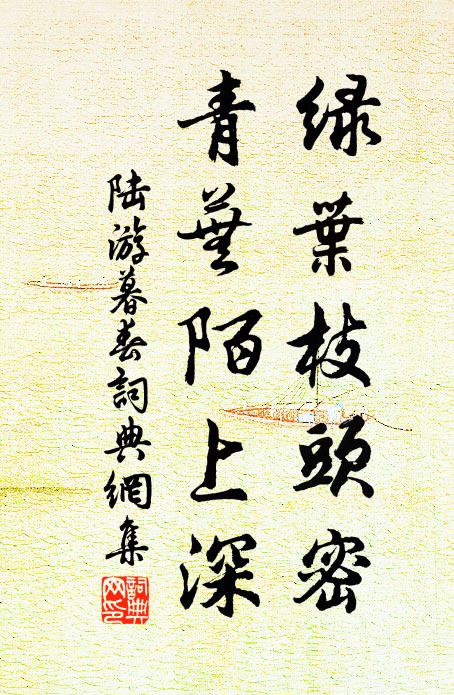 绿葉枝頭密
青蕪陌上深
陆游暮春詞典網集
詞典网印